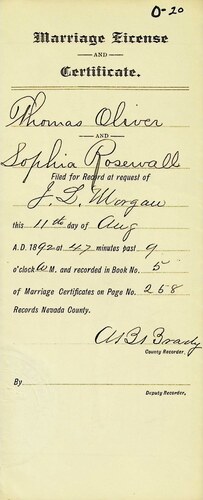 O-20
Marriage License
AND
Certificate.
Thomas Oliver
AND
Sophia Rosewall
Filed for Record at request of
J. L. Morgan
this 11th day of Aug
A.D. 1892 at 47 minutes past 9
o'clock A.M. and recorded in Book No. 5
of Marriage Certificates on Page No. 258
Records Nevada County.
Brady
County Recorder.
By
Deputy Recorder.